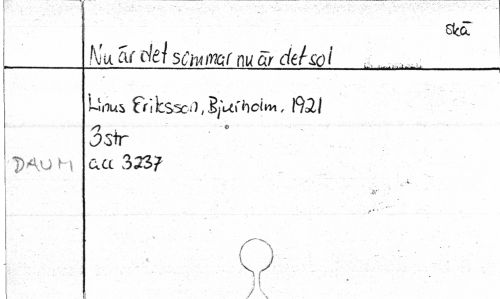 skä
Nu är det sommar nu är det sol
Linus Eriksson, Bjurholm, 1921
3 str
DAUM acc 3237